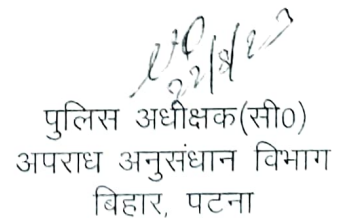 22/8/23
पुलिस अधीक्षक(सी0)
अपराध अनुसंधान विभाग
बिहार, पटना